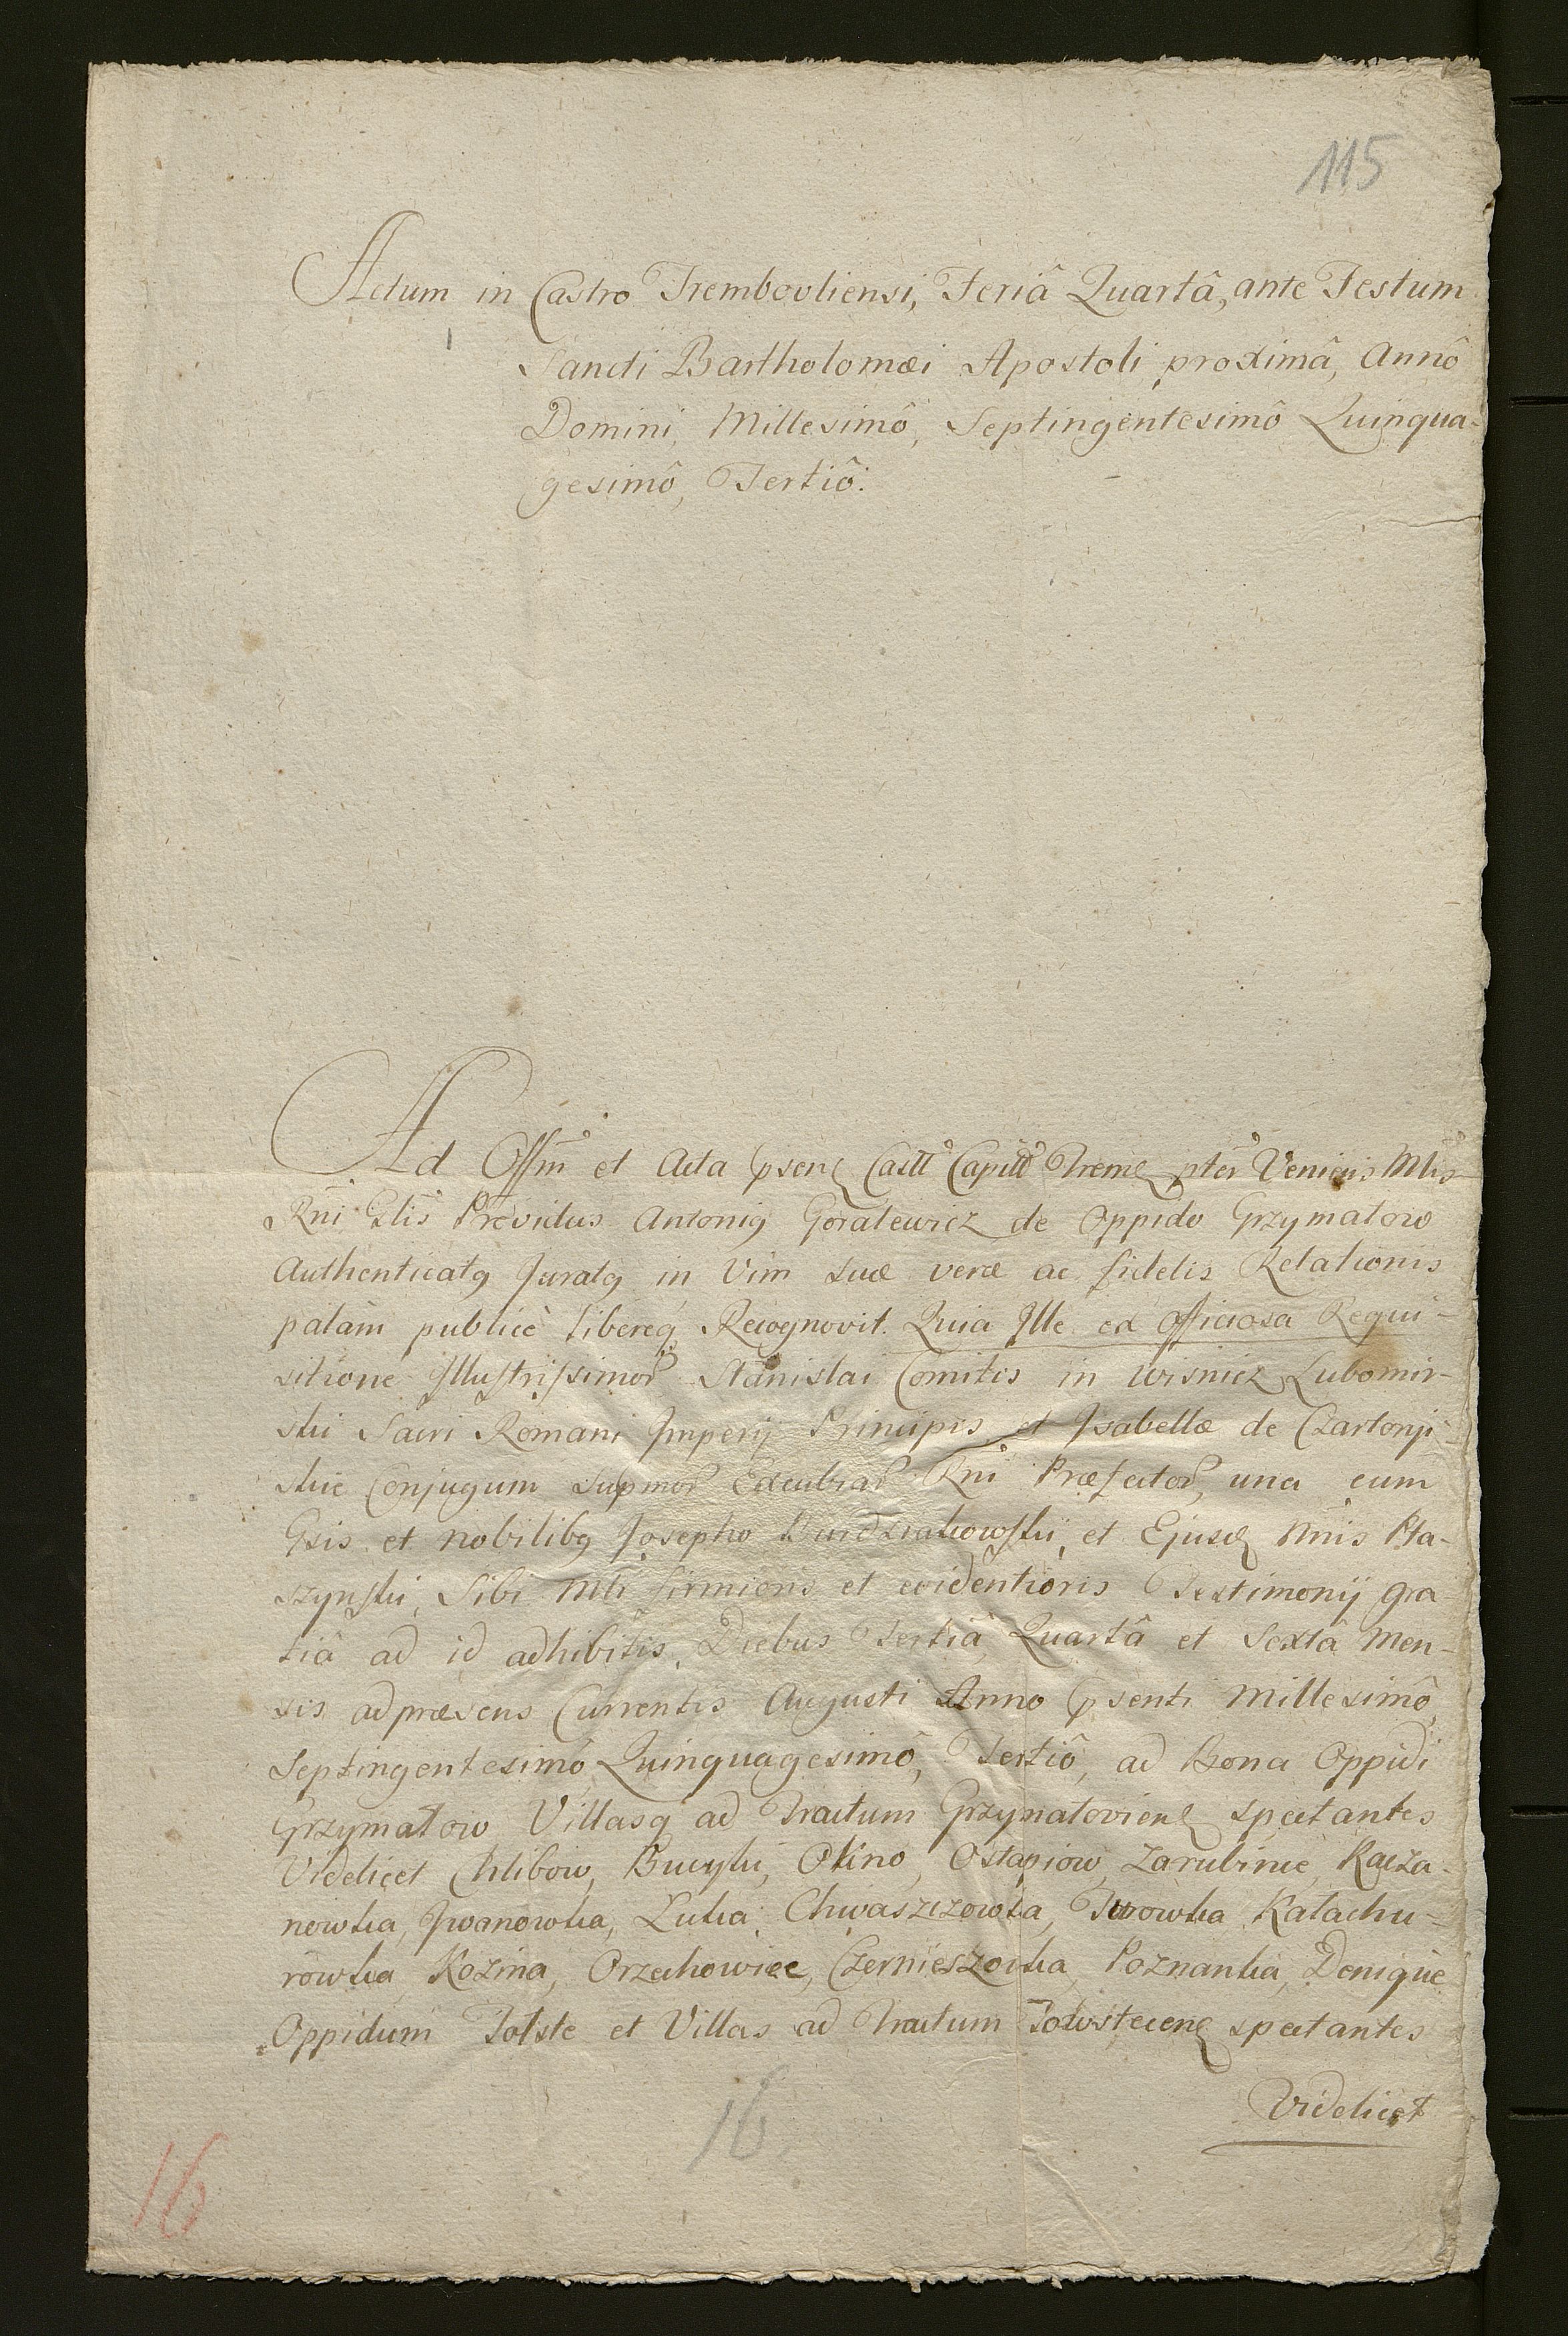 115
Actum in Castro Trembovliensi, Feriâ Quartâ, ante Festum
Sancti Bartholomæi Apostoli proximâ, Annô
Domini, Millesimô, Septingentesimô Quinqua-
gesimô, Tertiô.
Ad Offm et Acta Castr Capit Trem Veniens Mtis
Rni Providus Antonig Goralewicz de Oppido Grzymałow
Authenticatg Juratg in Vim suæ veræ ac fidelis Relationis
palàm publicè libereq Recognovit. Quia Ille ex officiosa Requi-
sitione Illustrissimor Stanislai Comitis in Wisnicz Lubomir-
ski Sacri Romani Imperij Principis et Isabellæ de Czartoryi-
skie Conjugum Supmor Excubiar Rni Præfector, una cum
Gsis et nobilibg Josepho et Ejusd Nnis Pta-
szynski, Sibi Mli firmioris et evidentioris Testimonij gra-
tiâ ad id adhibitis, Diebus Tertiâ, Quartâ et Sextâ Men-
sis ad præsens Currentis Augusti Anno psenti Millesimô
Septingentesimô Quinquagesimô, Tertiô, ad Bona Oppidi
Grzymałow Villasq ad Tractum Grzymałoviens spectantes
Videlicet Chlibow, Bucyki, Okno, Ostapiow, Zarubince, Racza-
nowka, Jwanowka, Łuka, Chwaszczowka, Kałachu-
rowka, Kozina, Orzechowiec, Czernieszowka, Poznanka, Deniquè
Oppidum Tołste et Villas ad Tractum spectantes
Videlicet
16
16